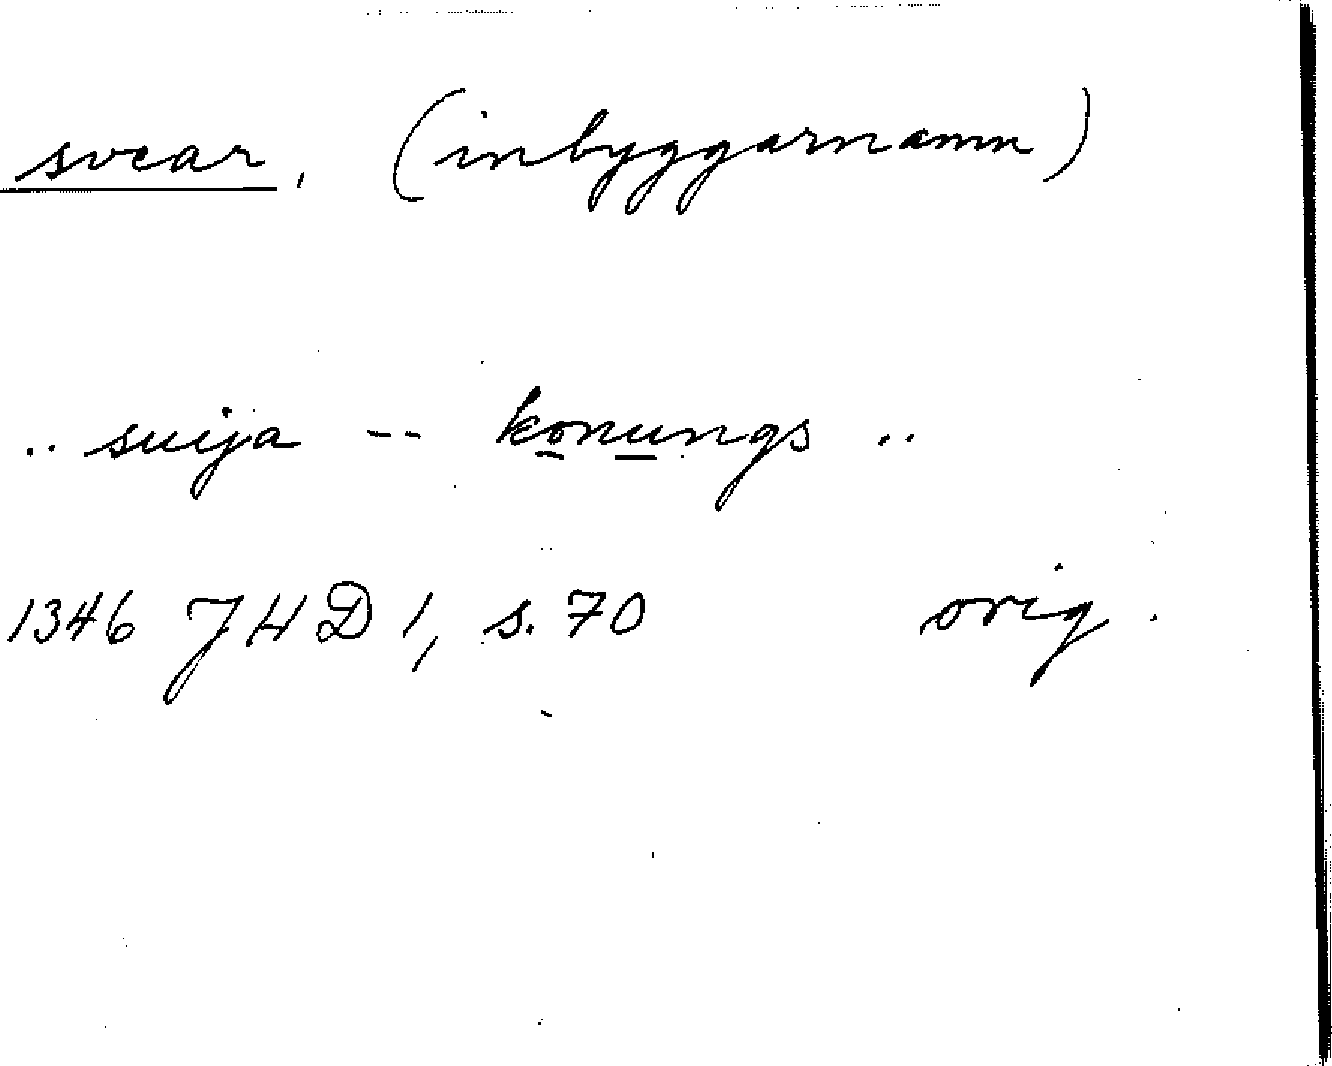 svear, (inbyggarnamn)
.. suija -- konungs ..
1346 JHD 1, s. 70 orig.